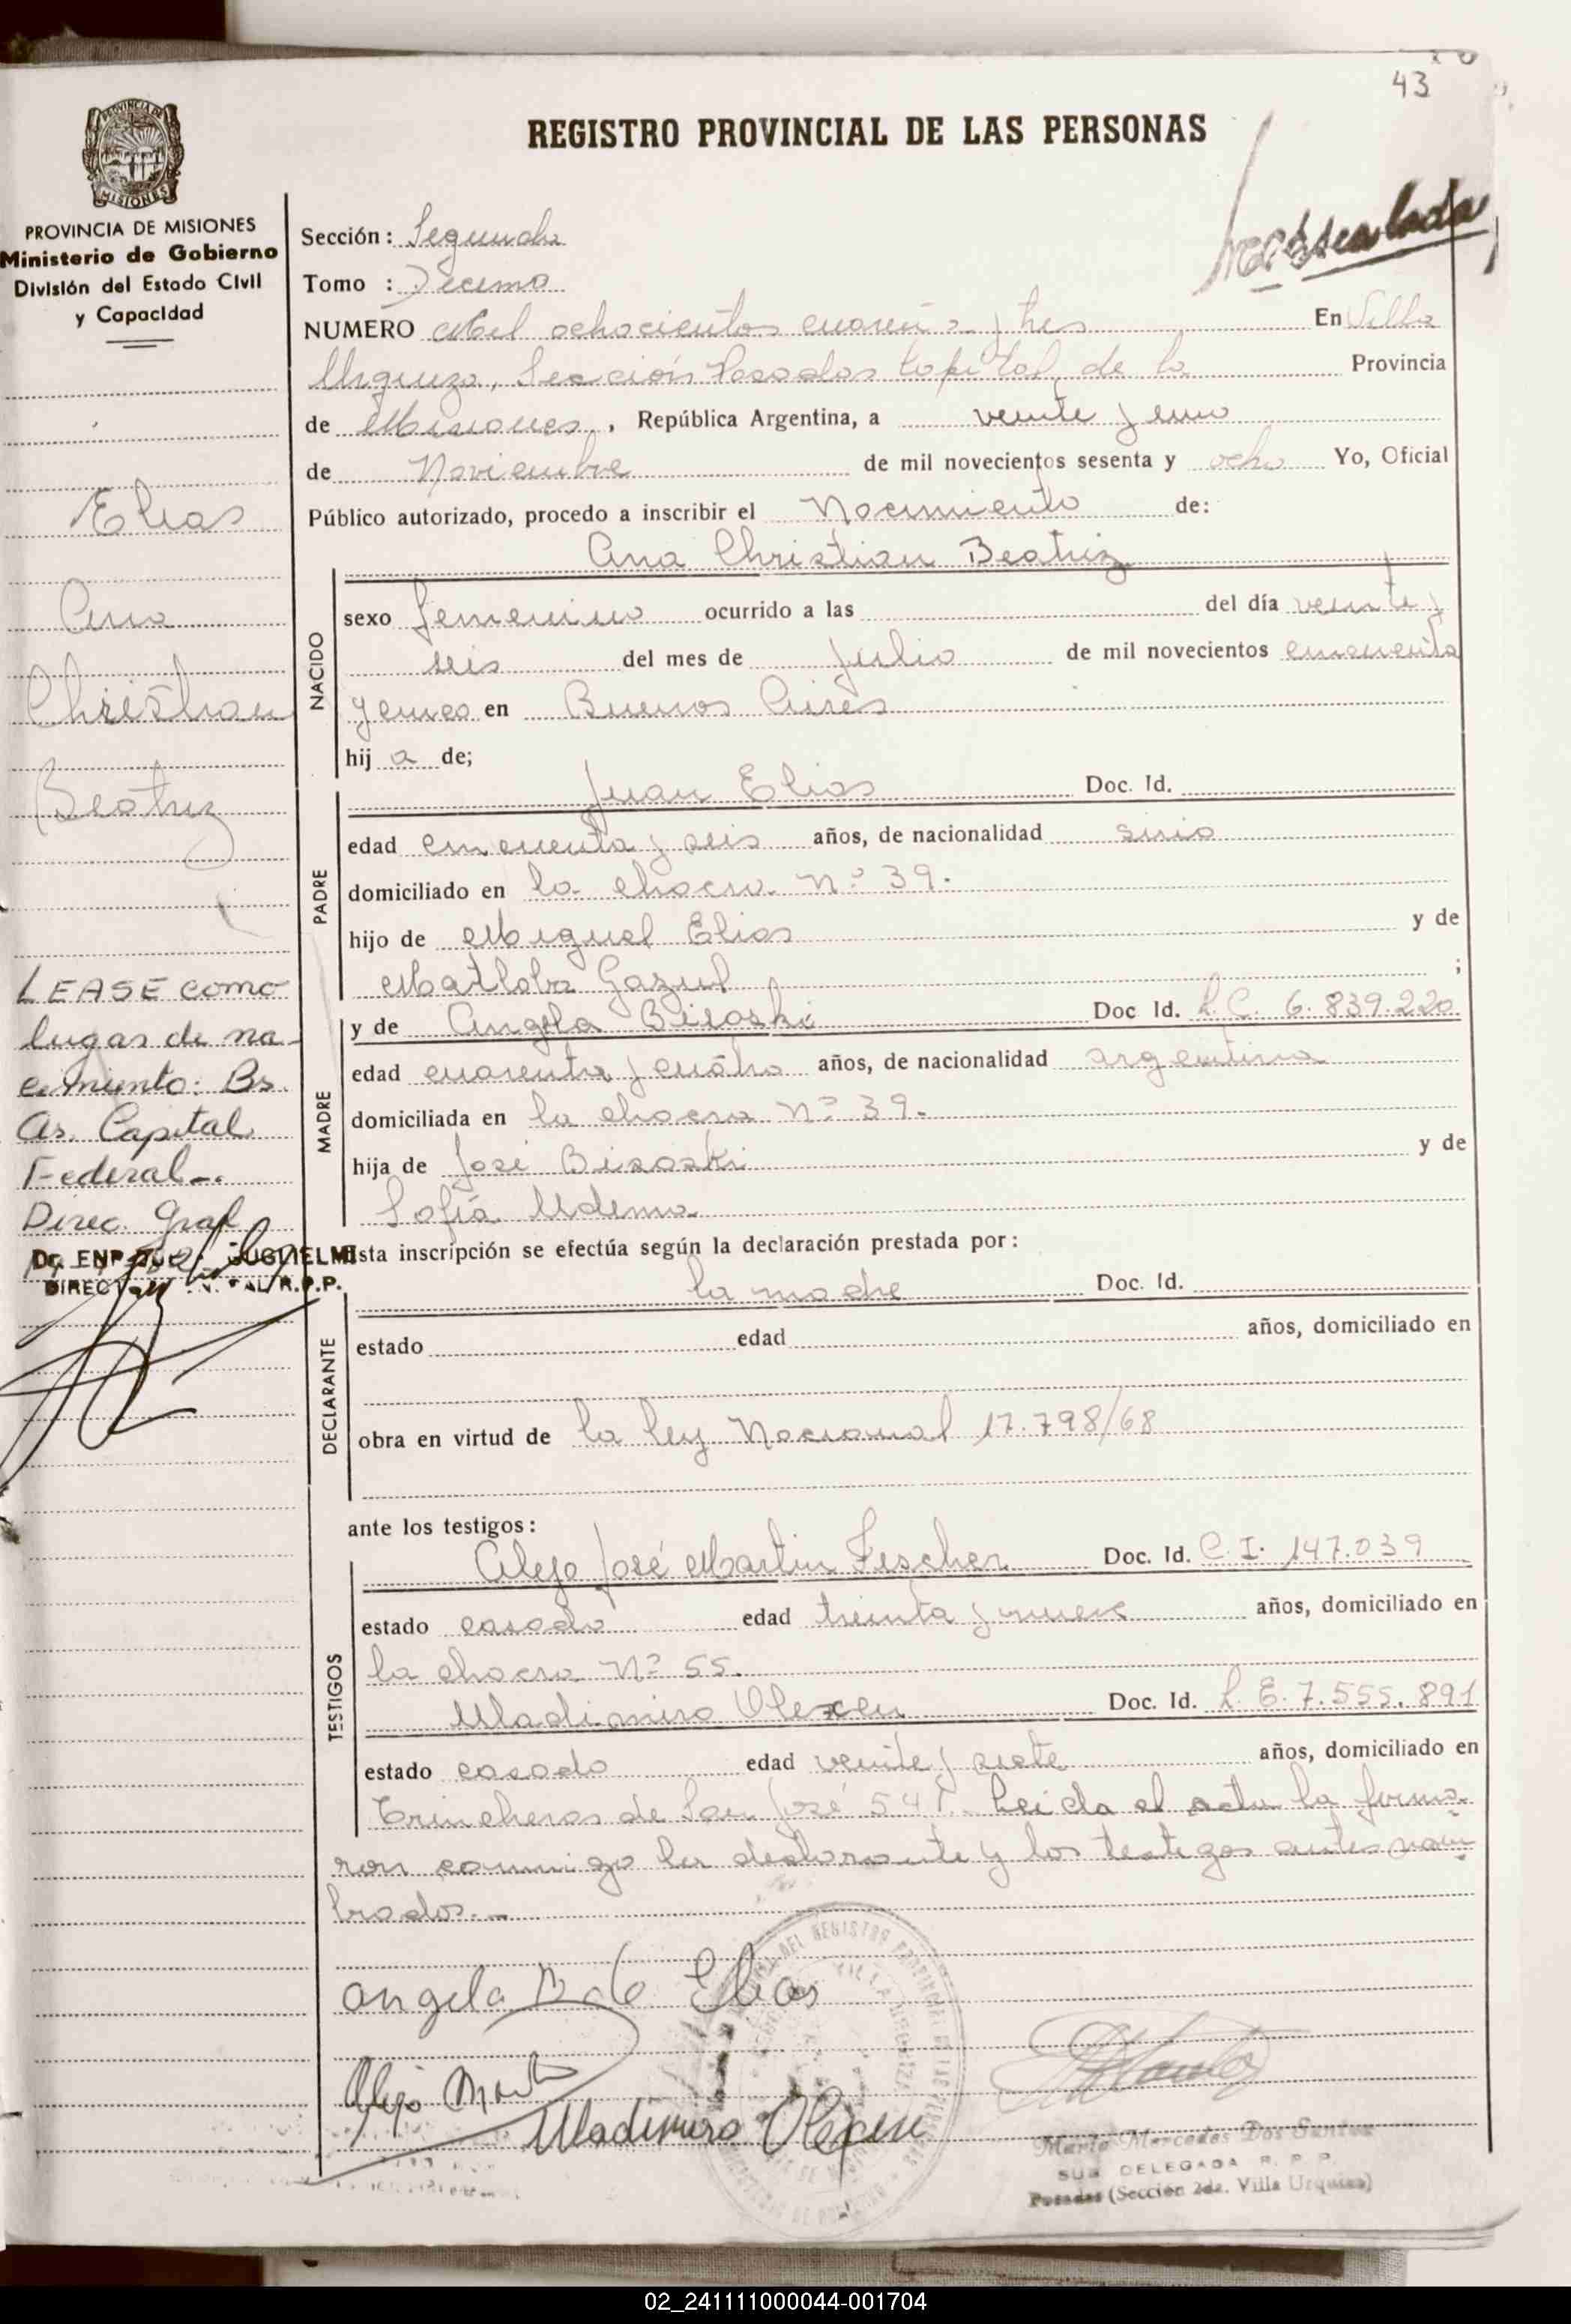 43
REGISTRO PROVINCIAL DE LAS PERSONAS
PROVINCIA DE MISIONES
PROVINCIA DE MISIONES
Ministerio de Gobierno
División del Estado Civil
y Capacidad
Sección: Segunda
Tomo : Décimo
NUMERO Mil ochocientos cuarenta y tres En Villa
Urquiza, Sección Posadas Capital de la Provincia
de Misiones, República Argentina, a veinte y uno
de Noviembre de mil novecientos sesenta y ocho Yo, Oficial
Público autorizado, procedo a inscribir el Nacimiento de:
Ana Christian Beatriz
NACIDO
sexo femenino ocurrido a las del día veinte y
seis del mes de julio de mil novecientos cincuenta
y cinco en Buenos Aires
hij a de;
Juan Elias Doc. Id.
PADRE
edad cincuenta y seis años, de nacionalidad sirio
domiciliado en la chacra Nº 39.
hijo de Miguel Elias y de
Matloba Gazul ;
y de Angela Bisoski Doc Id. L.C. 6.839.220
MADRE
edad cuarenta y cuatro años, de nacionalidad argentina
domiciliada en la chacra Nº 39.
hija de José Bisoski y de
Sofía
Esta inscripción se efectúa según la declaración prestada por:
la madre Doc. Id.
DECLARANTE
estado edad años, domiciliado en
obra en virtud de la ley Nacional 17.798/68
ante los testigos:
Alejo José Martin Fischer Doc. Id. C.I. 147.039
TESTIGOS
estado casado edad treinta y nueve años, domiciliado en
la chacra Nº 55.
Uladimiro Olexen Doc. Id. L.E. 7.555.891
estado casado edad veinte y siete años, domiciliado en
Trincheras de San José 541. Leida el acta la firma-
ron conmigo la declarante y los testigos antes nom-
brados.-
Angela B. de Elias
Alejo Martin
Uladimiro Olexen
Maria Mercedes Dos Santos
SUB DELEGADA R. P. P.
Posadas (Sección 2da. Villa Urquiza)
Elias
Ana
Christian
Beatriz
LEASE como
lugar de na-
cimiento: Bs.
As. Capital
Federal-.
Direc. Gral
02_241111000044-001704